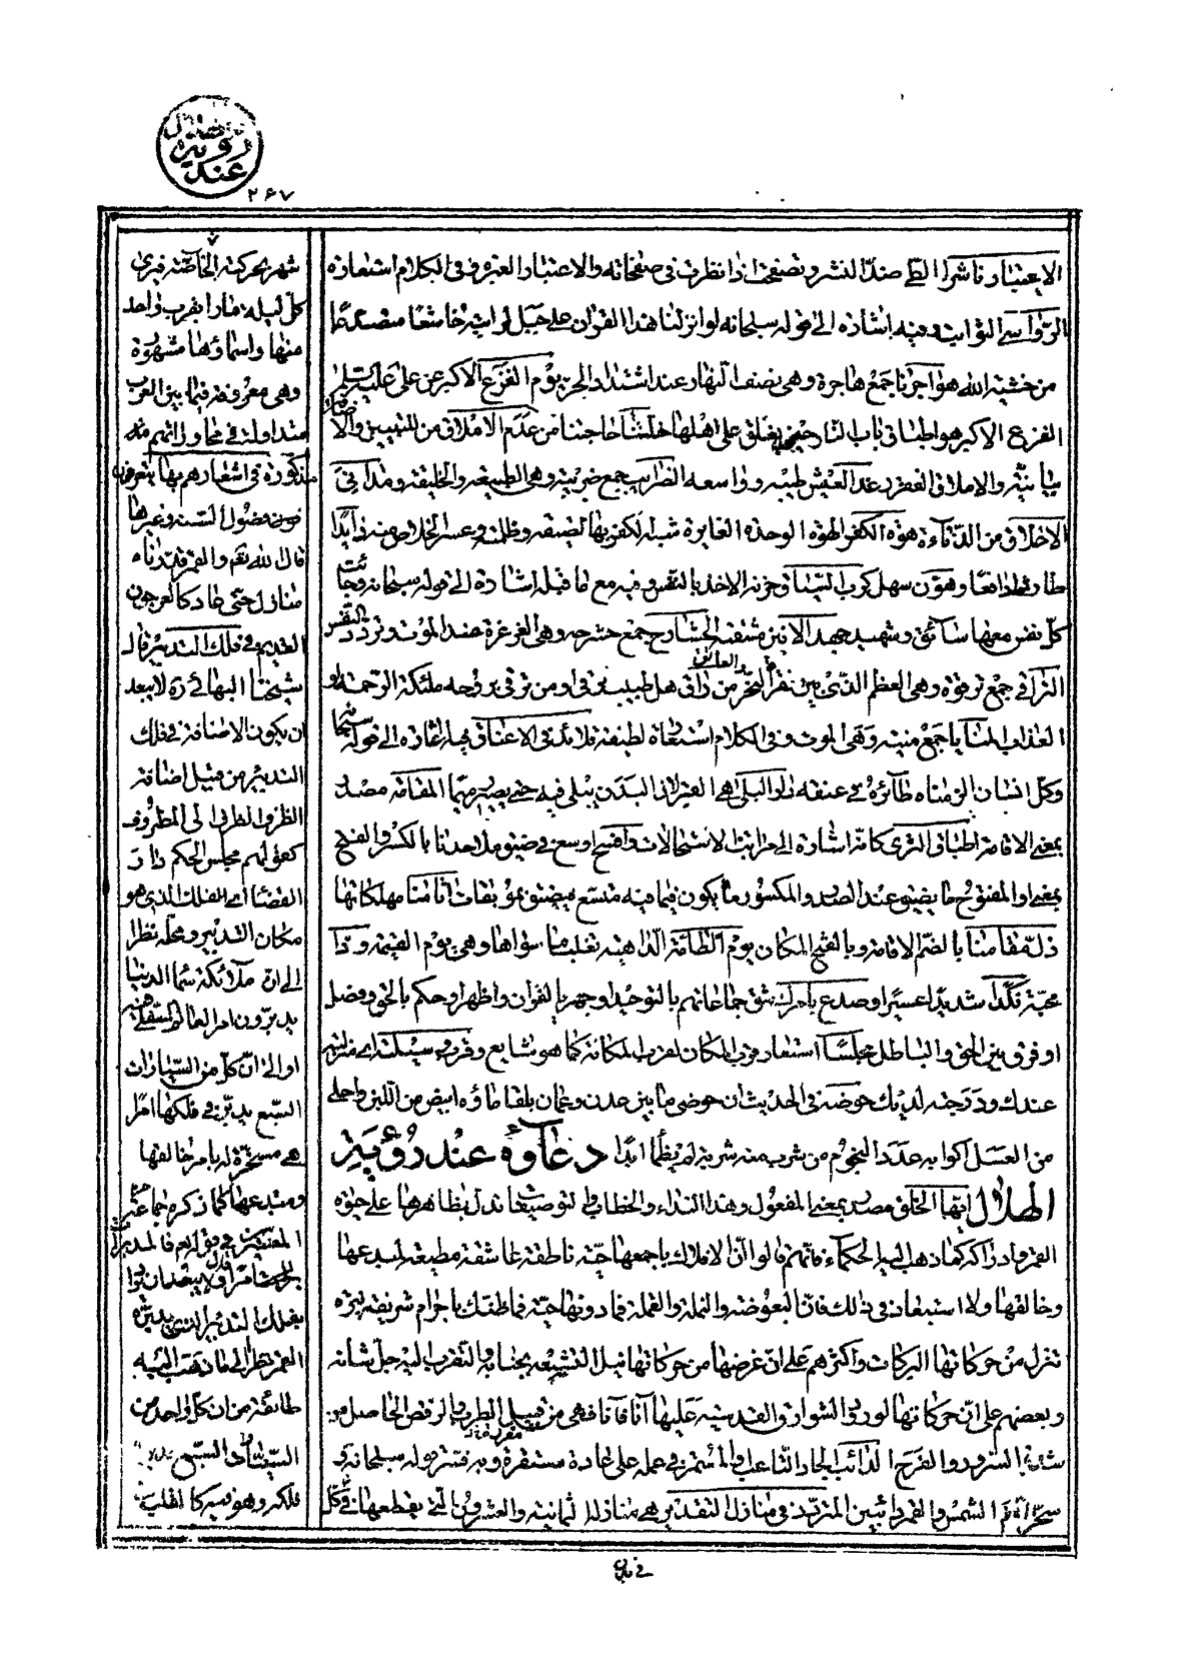 عند رؤية
٢٦٧
الاعتبار ناشرا الطى ضد النشر وتصفحت اذا نظرت فى صفحاته والاعتبار العبرة وفى الكلام استعارة
الرواسى الثوابت وفيه اشارة الى قوله سبحانه لو انزلنا هذا القران على جبل لرايته خاشعا متصدعا
من خشية الله هواجرنا جمع هاجرة وهى نصف النهار عند اشتداد الحر يوم الفزع الاكبر عن على عليه السلم
الفزع الاكبر هو اطباق باب النار حين يغلق على اهلها خلتنا حاجتنا من عدم الاملاق من
والاملاق الفقر رغد العيش طيبه وواسعه الضرايب جمع ضريبة وهى الطبيعة والخليقة ومدانى
الاخلاق من الدناءة هوة الكفر الهوة الوهدة الغايرة شبه الكفر بها لضيقه وظلمته وعسر الخلاص منه ذايدا
طاردا دافعا وهون سهل كرب السياق وحزنه الاخذ بالنفس وفيه مع ما قبله اشارة الى قوله سبحانه وجائت
كل نفس معها سائق وشهيد جهد الانين مشقته الحشارج جمع حشرجه وهى الغرغرة عند الموت وتردد النفس
التراقى جمع ترقوة وهى العظم الذى بين ثغرة النحر والعاتق من راق هل طبيب يرقى او من يرقى بروحه ملئكة الرحمة او
العذاب المنايا جمع منيه وهى الموت وفى الكلام استعارة لطيفة قلائد فى الاعناق فيه اشارة الى قوله سبحانه
وكل انسان الزمناه طائره فى عنقه دار البلى هى القبر لان البدن يبلى فيه حتى يصير رميما المقامة مصدر
بمعنى الاقامة اطباق الثرى كانه اشارة الى مراتب الاستحالات وافسح اوسع فى ضيق ملاحدنا بالكسر والفتح
بمعنى او المفتوح ما يضيق عنه الصدر والمكسور ما يكون فيما فيه متسع فيضيق موبقات اثامنا مهلكاتها
ذل مقامنا بالضم الاقامة وبالفتح المكان يوم الطامة الداهية تغلب ما سواها وهى يوم القيمة وذا
محبة نكدا شديدا عسيرا وصدع بامرك شق جماعاتهم بالتوحيد او جهر بالقران واظهر او حكم بالحق وفصل
او فرق بين الحق والباطل مجلسا استعار قرب المكان لقرب المكانة كما هو شايع وقرب وسيلته اى منزلته
عندك ودرجته لديك حوضه فى الحديث ان حوضى ما بين عدن وعمان بلقا ماؤه ابيض من اللبن واحلى
من العسل اكوابه عدد النجوم من شرب منه شربة لم يظما ابدا دعاؤه عند رؤية
الهلال ايها الخلق مصدر بمعنى المفعول وهذا النداء والخطاب والتوصيفات تدل بظاهرها على حيوة
القمر وادراكه كما ذهب اليه الحكماء فانهم قالوا ان الافلاك باجمعها حية ناطقة عاشقة مطيعة لمبدعها
وخالقها ولا استبعاد فى ذلك فان البعوضة والنملة والقملة فما دونها حية فما ظنك باجرام شريفة نيرة
تنزل من حركاتها البركات واكثرهم على ان غرضها من حركاتها نيل التشبه بجنابه والتقرب اليه جل شانه
وبعضهم على ان حركاتها لورود الشوارق القدسية عليها آنا فآنا فهى من قبيل الطرب والرقص الحاصل من
شدة السرور والفرح الدائب الجاد التاعب او المستمر فى عمله على عادة مستقرة وبه فسر قوله سبحانه
سخر لكم الشمس والقمر دائبين المتردد فى منازل التقدير هى منازله الثمانية والعشرون التى يقطعها فى كل
شهر بحركته الخاصة فيرى
كل ليلة نازلا بقرب واحد
منها واسماؤها مشهورة
وهى معروفة فيما بين العرب
متداولة فى محاوراتهم
مذكورة فى اشعارهم بها يتعرفون
فصول السنة وغيرها
قال الله تعم والقمر قدرناه
منازل حتى عاد كالعرجون
القديم فى فلك التدبير قال
شيخنا البهائى ره لا يبعد
ان يكون الاضافة فى فلك
التدبير من قبيل اضافة
الظرف الى المظروف
كقولهم مجلس الحكم ودار
القضا اى الفلك الذى هو
مكان التدبير ومحله نظرا
الى ان ملائكة سماء الدنيا
يدبرون امر العالم السفلى فيه
او الى ان كلا من السيارات
السبع يدبر فى فلكها امرا
هى مسخرة له بامر خالقها
ومبدعها كما ذكره جماعة
المفسرين فى قوله تعم فالمدبرات
امرا
بفلك التدبير الذى يدبره
القمر نظرا الى ما ذهب اليه
طائفة من ان كل واحد من
السيارات السبع
فلكه وهو فيه كالقلب
فى بدن